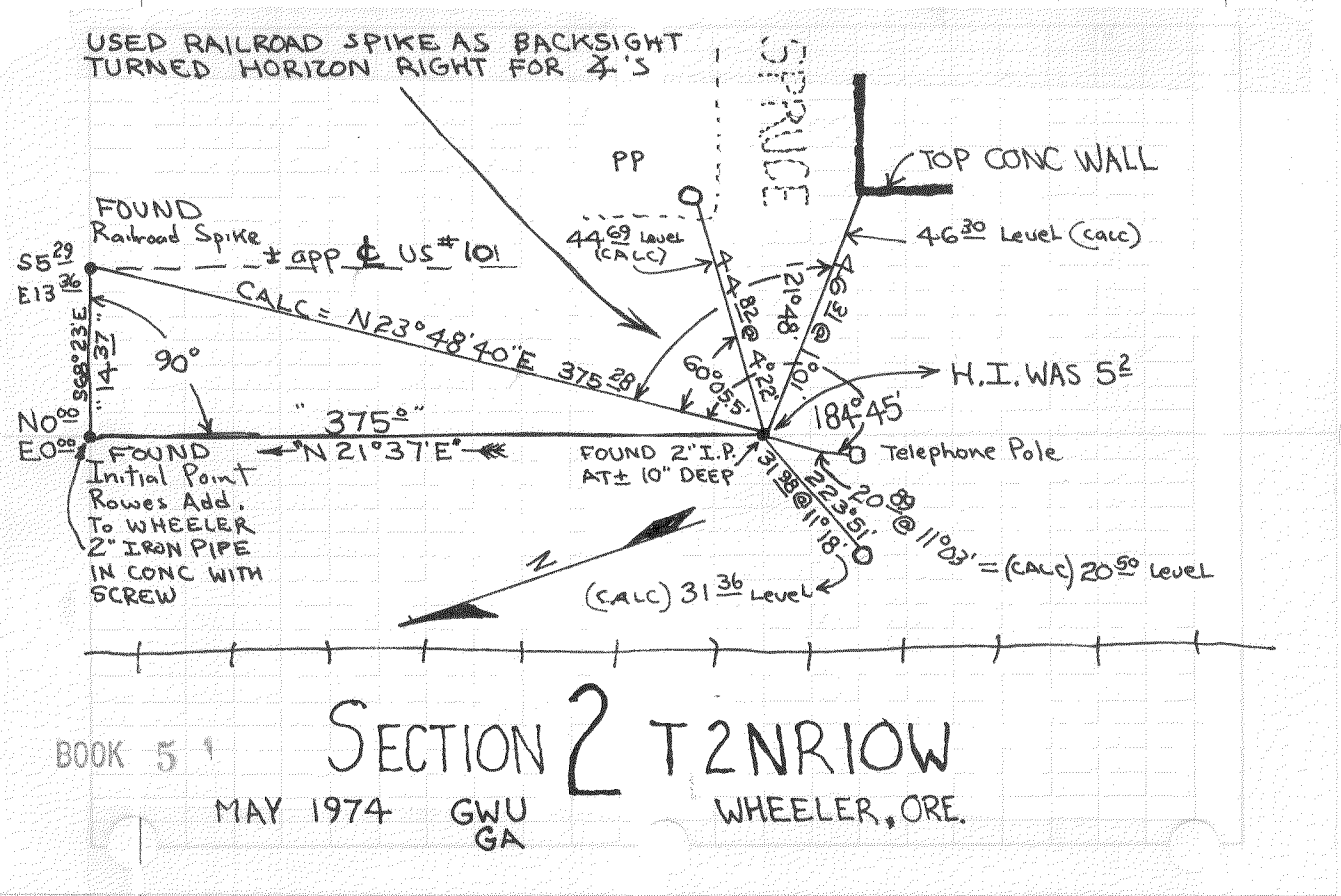 USED RAILROAD SPIKE AS BACKSIGHT
TURNED HORIZON RIGHT FOR ∡'S
SPRUCE
PP
TOP CONC WALL
FOUND
Railroad Spike
± app ℄ US #101
S5 29
E13 36
44 69 Level
(CALC)
46 30 Level (calc)
CALC = N23°48'40"E 375 28
S68°23'E
"14.37"
90°
44 82 @ 4°22'
121°48'
46 31 @ 1°01'
60°055'
H.I. WAS 5 2
184°45'
N0 00
E0 00
"375 0"
N 21°37'E"
FOUND
Initial Point
Rowes Add.
To WHEELER
2" IRON PIPE
IN CONC WITH
SCREW
FOUND 2" I.P.
AT ± 10" DEEP
Telephone Pole
31 98 @ 11°18'
223°51'
20 89 @ 11°03' = (CALC) 20 50 Level
(CALC) 31 36 Level
N
SECTION 2 T2NR10W
BOOK 5
MAY 1974 GWU WHEELER, ORE.
GA